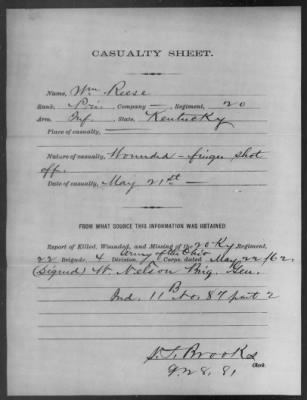 CASUALTY SHEET.
Name, Wm Reese
Rank, Pri. Company — Regiment, 20
Arm, Inf. State, Kentucky
Place of casualty, —
Nature of casualty, Wounded – finger shot
off.
Date of casualty, May 21st –
FROM WHAT SOURCE THIS INFORMATION WAS OBTAINED
Report of Killed, Wounded, and Missing of the 20 Ky Regiment,
Army of the Ohio
22 Brigade, 4 Division, Corps, dated May 22/62,
(Signed) W. Nelson Brig. Gen.
Ind. 11 B No. 87 part 2
S. T. Brooks
Clerk.